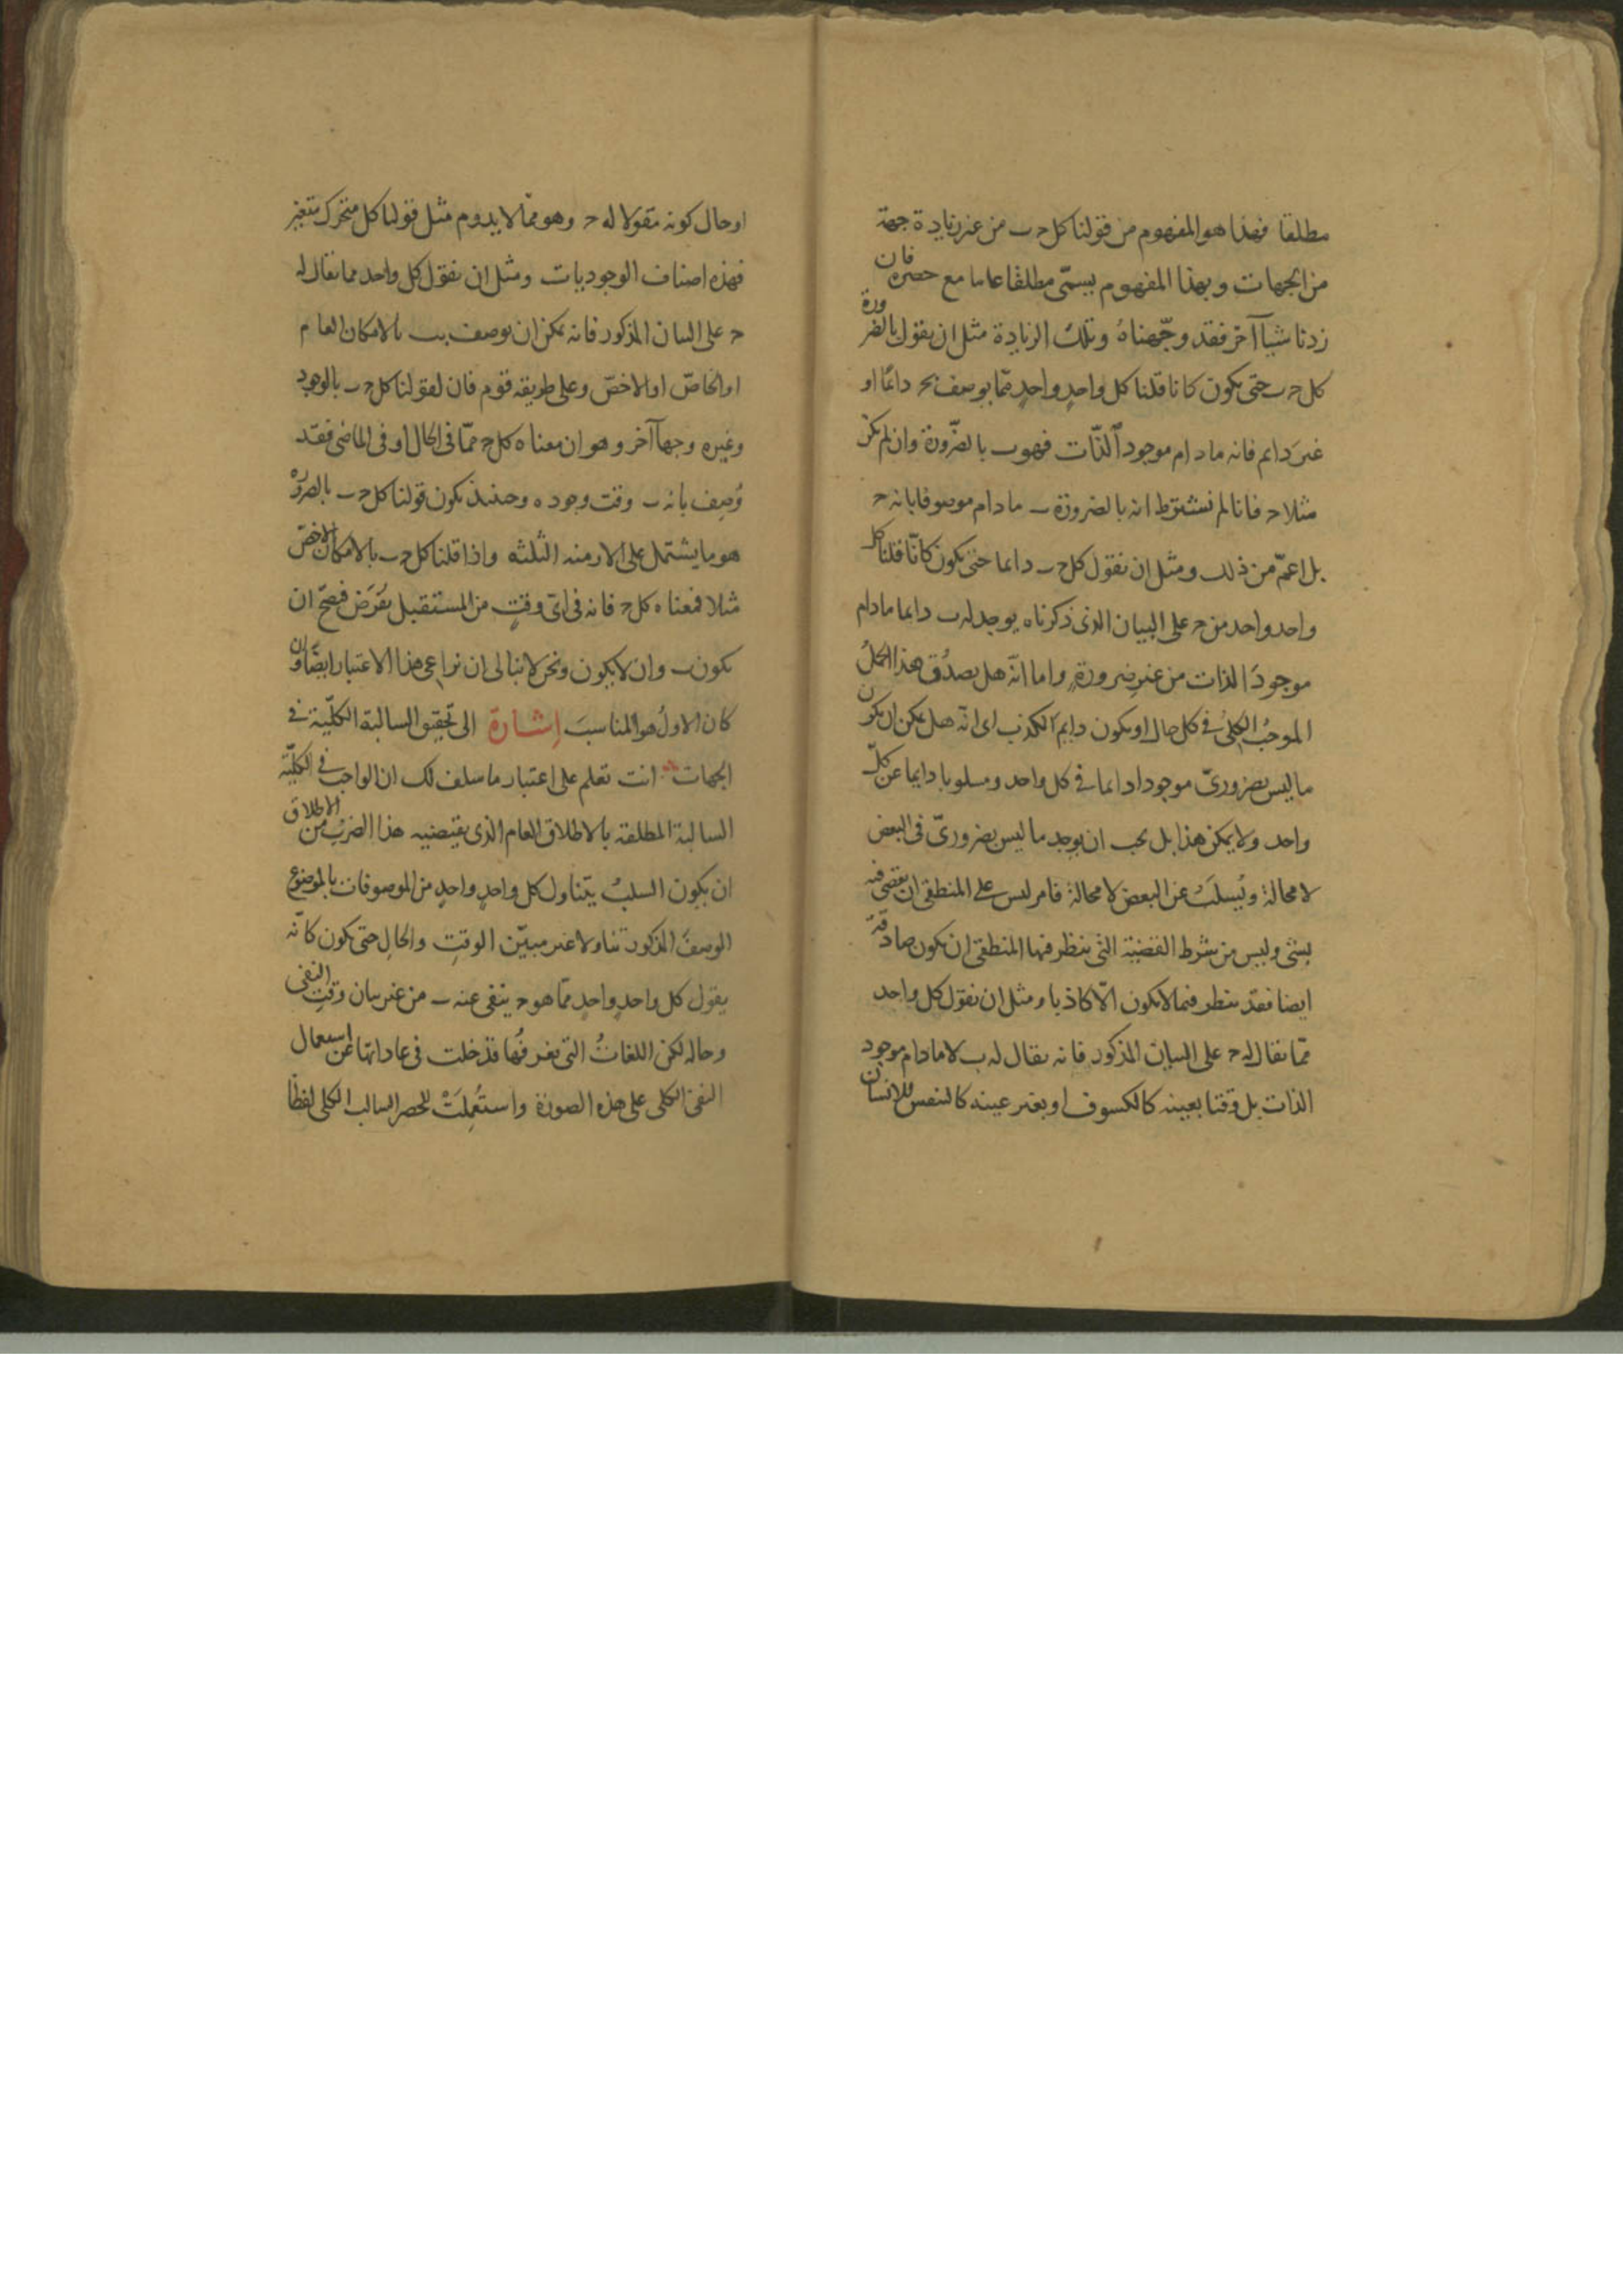 مطلقا فهذا هو المفهوم من قولنا كل ج ب من غير زيادة جهة
من الجهات وبهذا المفهوم يسمّى مطلقا عاما مع حصره فان
زدنا شيأ آخر فقد وجّهناهُ وتلك الزيادة مثل ان يقول بالضرورة
كل ج ب حتى يكون كانا قلنا كل واحدٍ واحدٍ ممّا يوصف بج دائمًا او
غيرَ دائم فانه مادام موجود الذّات فهو ب بالضّرورة وان لم يكن
مثلا ج فانا لم نشترط انه بالضرورة ب مادام موصوفا بانه ج
بل اعمّ من ذلك ومثل ان نقول كل ج ب دايما حتى يكون كانّا قلنا كل
واحد واحد من ج على البيان الذى ذكرناه يوجد له ب دايما مادام
موجودَ الذات من غير ضرورةٍ واما انّه هل يصدُق هذا الحملُ
الموجبُ الكلىُ فى كل حال او يكون دايمَ الكذب اى انّه هل يمكن ان يكون
ما ليس بضرورىّ موجودا دايما فى كل واحد ومسلوبا دايما عن كلّ
واحد ولا يمكن هذا بل يجب ان يوجد ما ليس بضرورىّ فى البعض
لا محالة ويُسلَبَ عن البعض لا محالة فامر ليس على المنطقى ان يقضى فيه
بشى وليس من شرط القضية التى ينظر فيها المنطقى ان يكون صادقة
ايضا فقد ينظر فيما لا يكون الّا كاذبا ومثل ان نقول كل واحد
ممّا يقال له ج على البيان المذكور فانه يقال له ب لا مادام موجود
الذات بل وقتا بعينه كالكسوف او بغير عينه كالتنفس للانسان
او حال كونه مقولا له ج وهو ممّا لا يدوم مثل قولنا كل متحرك متغير
فهذه اصناف الوجوديات ومثل ان نقول كل واحد مما يقال له
ج على البيان المذكور فانه يمكن ان يوصف بب بالامكان العام
او الخاصّ او الاخصّ وعلى طريقه قوم فان لقولنا كل ج ب بالوجود
وغيره وجهاً آخر وهو ان معناه كل ج ممّا فى الحال او فى الماضى فقد
وُصِف بانه ب وقت وجوده وحينئذ يكون قولنا كل ج ب بالضرورة
هو ما يشتمل على الازمنه الثلثه واذا قلنا كل ج ب بالامكان الاخصّ
مثلا فمعناه كل ج فانه فى اىّ وقتٍ من المستقبل يُفرَض فيصحّ ان
يكون ب وان لا يكون ونحن لا نبالى ان نراعى هذا الاعتبار ايضًا وان
كان الاولُ هو المناسبَ اشارة الى تحقيق السالبة الكلّية فى
الجهات انت تعلم على اعتبار ما سلف لك ان الواجب فى الكليّة
السالبة المطلقة بالاطلاق العام الذى يقتضيه هذا الضربُ من الاطلاق
ان يكون السلبُ يتناول كل واحدٍ واحدٍ من الموصوفات بالموضوع
الوصفَ المذكور تناولا غير مبيّن الوقتِ والحالِ حتى يكون كانّه
يقول كل واحدٍ واحدٍ ممّا هو ج ينفى عنه ب من غير بيان وقتِ النفى
وحاله لكن اللغاتُ التى نعرفُها قد خلت فى عاداتها عن استعمال
النفى الكلى على هذه الصورة واستُعمِلَتْ للحصر السالب الكلى لفظًا